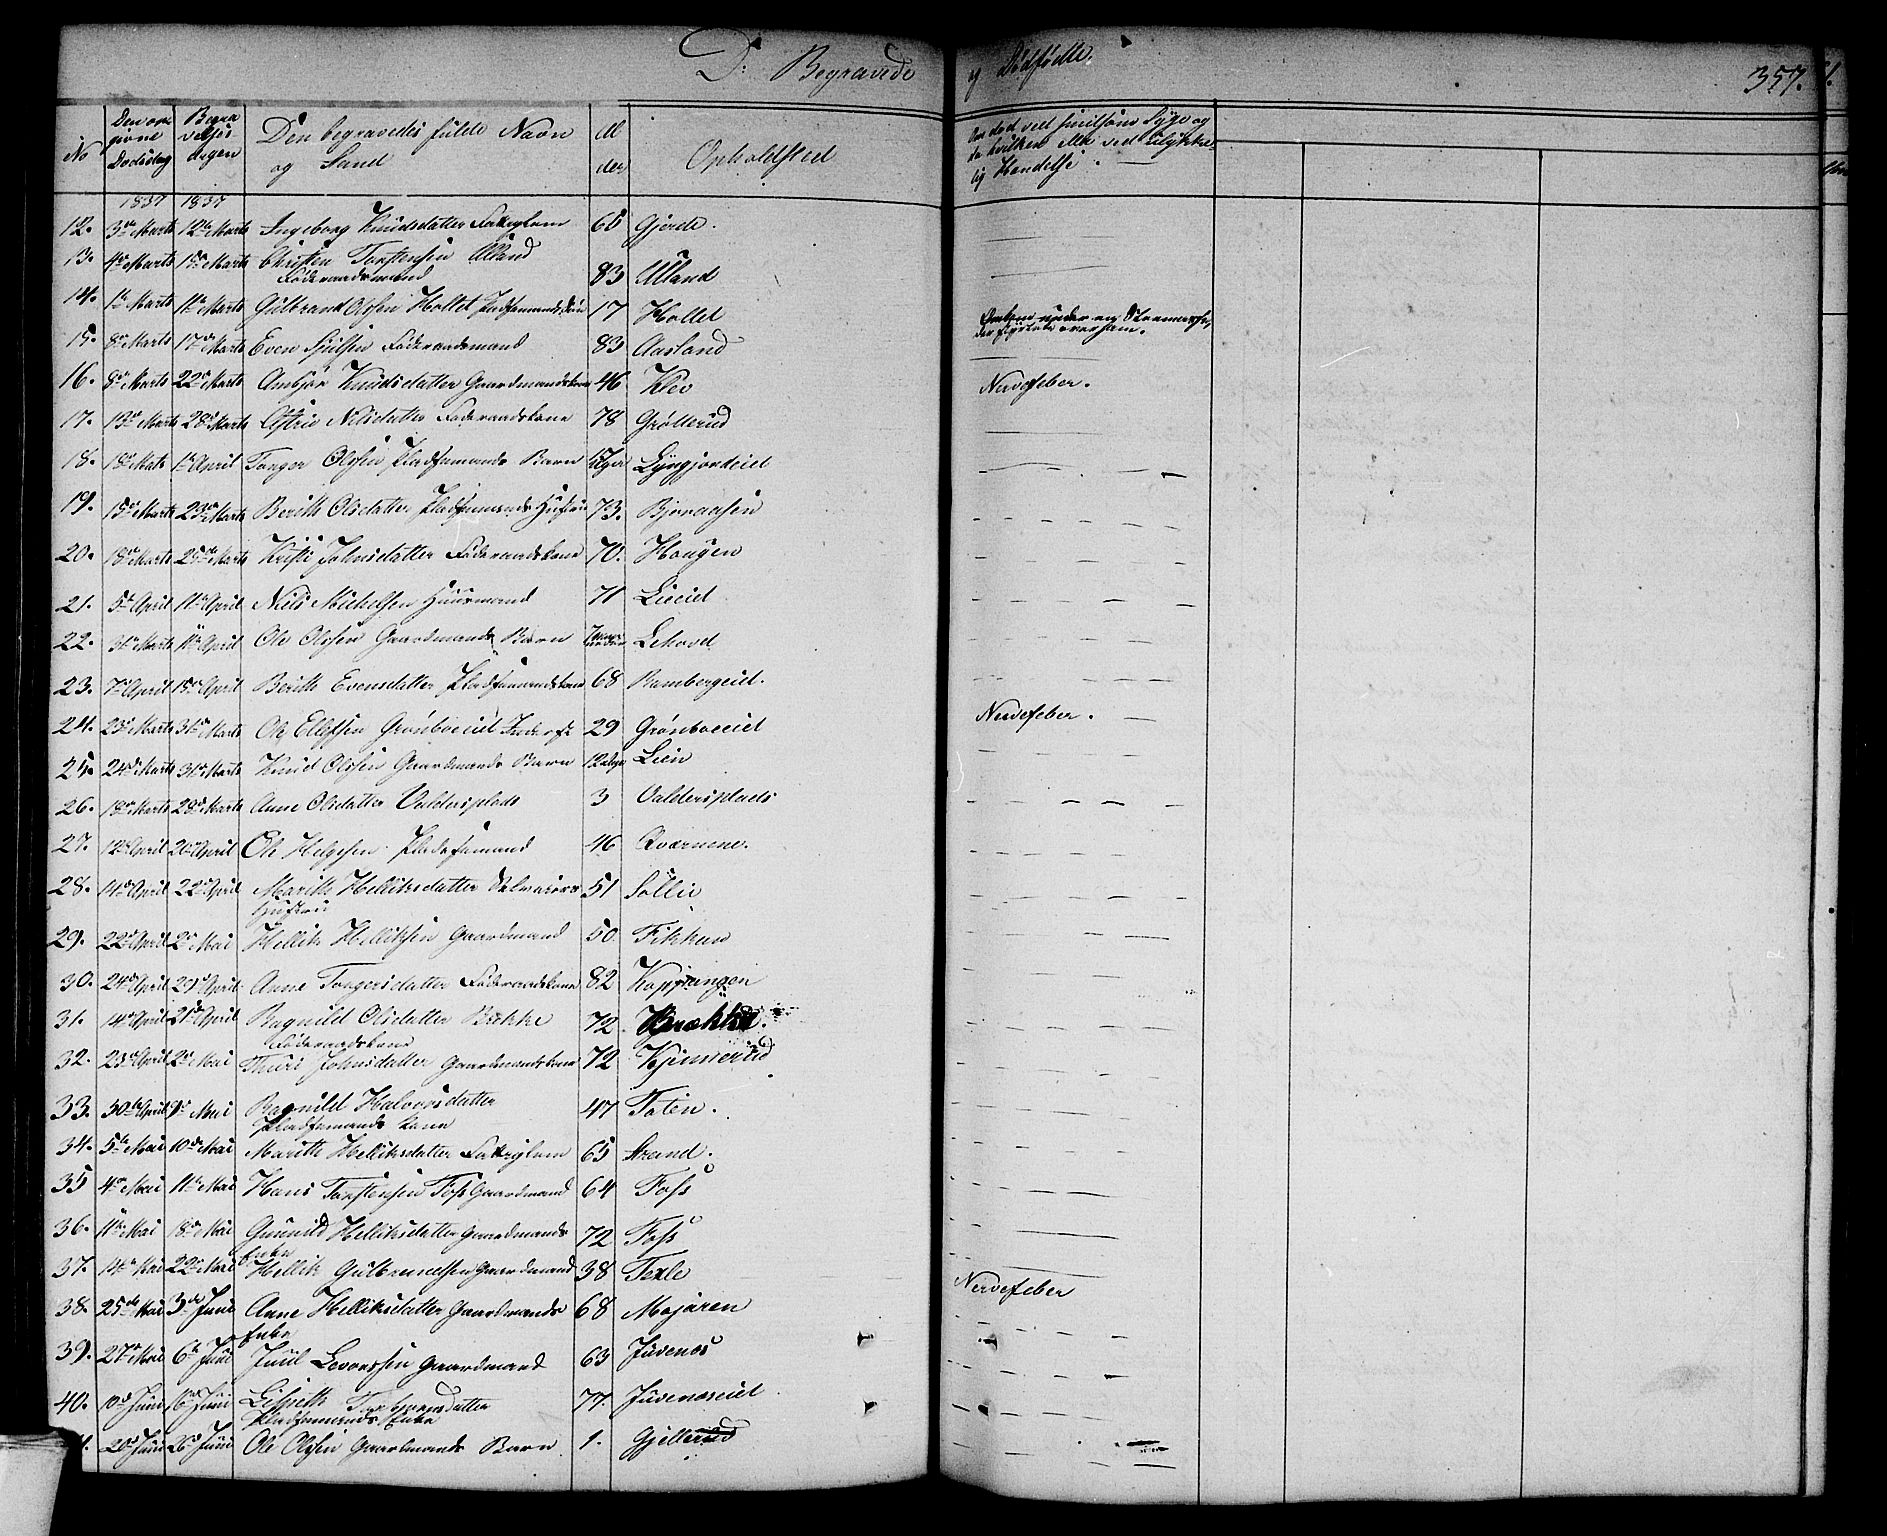 D: Begravede
og Dødfødte.
357.
No
Den op givne Dødsdag
Begra velses dagen
Den begravedes fulde Navn og Stand
Al der
Opholdsted
Om død ved smitsom Syge og da hvilken eller ved Ulykke lig Hændelse.
1837 1837
12. 3de Marts 12te Marts Ingeborg Knudsdatter Fattiglem 60 Gjerde.
13. 4de Marts 15de Marts Christen Torstensen Ulland Föderaadsmand 83 Ulland
14. 1te Marts 11te Marts Gulbrand Olssen Hollet Pladsemands Søn 17 Hollet
15. 8de Marts 17de Marts Even Sjulsen Föderaadsmand 83 Aasland
16. 8de Marts 22de Marts Ambjør Knudsdatter Gaardmandskone 46 Klev Nervefeber.
17. 13de Marts 28de Marts Astrie Nilsdatter Föderaadskone 78 Grøllerud
18. 18de Mats 1te April Torger Olssen Pladsemands Barn
19. 15de Marts 23de Marts Berith Olsdatter Pladsemands Hustru 73. Bjoraasen
20. 18de Marts 25de Marts Kristi Johnsdatter Föderaadskone 70. Hougen
21. 5te April 11te April Niels Mickelsen Huusmand 71 Lieeid
22. 31te Marts 11te April Ole Olssen Gaardmands Barn Lehovd
23. 7de April 15de April Berith Evensdatter Pladsemandskone 68 Rambergeid.
24. 23de Marts 31te Marts Ole Ellefsen Grønboeeid 29 Grønboeeid Nervefeber.
25. 24de Marts 31te Marts Knud Olssen Gaardmands Barn 12 Uger Lien
26. 18de Marts 28de Marts Anne Olsdatter Valdersplads 3 Valdersplads
27. 12te April 20de April Ole Helgesen Pladsemand 46 Qværnene.
28. 14de April 22de April Marith Helliksdatter Hustru 51 Sollie
29. 22de April 2de Mai Hellik Helliksen Gaardmand 50. Fikkan
30. 24de April 29de April Anne Torgersdatter Föderaadskone 82 Kopjungen
31. 14de April 21de April Ragnild Olsdatter Bække Föderaadskone 72.
32. 23de April 2de Mai Thuri Johnsdatter Gaardmandskone 72 Kjimerud
33. 30te April 9de Mai Ragnild Halvorsdatter Pladsemands Kone 47 Toten.
34. 5te Mai 10de Mai Marith Helliksdatter Fattiglem 65 Strand.
35 4de Mai 11te Mai Hans Torstensen Foss Gaardmand 64 Foss
36. 11te Mai 18de Mai Gunnild Helliksdatter Gaardmands Enke 72 Foss
37. 14de Mai 22de Mai Hellik Gulbrandsen Gaardmand 38 Texle Nervefeber
38. 25de Mai 3de Juni Anne Helliksdatter Gaardmands Enke 68 Mojaren
39. 27de Mai 6te Juni Juul Levorssen Gaardmand 63 Juvenos
40. 10de Juni 16de Juni Lisbeth Torbjørnsdatter Pladsemands Enke 77. Juvenoseiet
20de Juni 26de Juni Ole Olssen Gaardmands Barn 1. Gjellerud